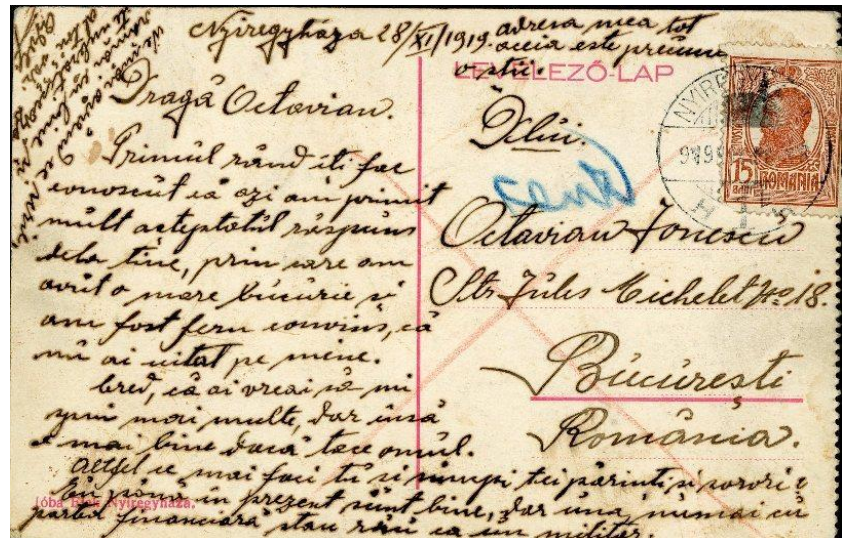 Nyiregyháza 28/XI/1919. adresa mea tot
aceia este precum
o stii.
LEVELEZŐ-LAP
Dragă Octavian.
Primul rând iti fac
conoscut că azi am primit
mult asteptatul răspuns
dela tine, prin care am
avut o mare bucurie si
am fost ferm convins, că
nu ai uitat pe mine.
Cred, că ai vreai să mi
spui mai multe, dar insă
e mai bine dacă tace omul.
Altfel ce mai faci tu si scumpi tei părinti si surori?
Eu până in prezent sunt bine, dar una numai cu
partea financiară stau rău ca un militar.
Jóba Nyiregyháza.
Dlui.
Octavian Ionescu
Str. Jules Michelet No 18.
București
România.
NYIREGYHÁZA
15
BANI
ROMANIA
POSTA